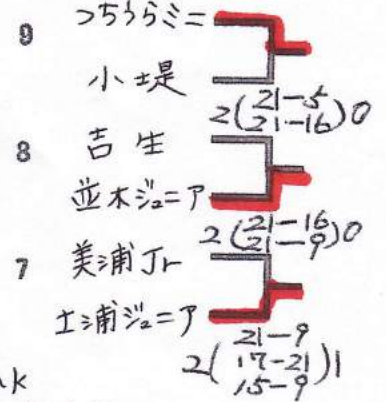 9 つちうらミニ
小堤
2(21-5
21-16)0
8 吉生
並木ジュニア
2(21-16
21-9)0
7 美浦Jr
土浦ジュニア
2(21-9
17-21
15-9)1